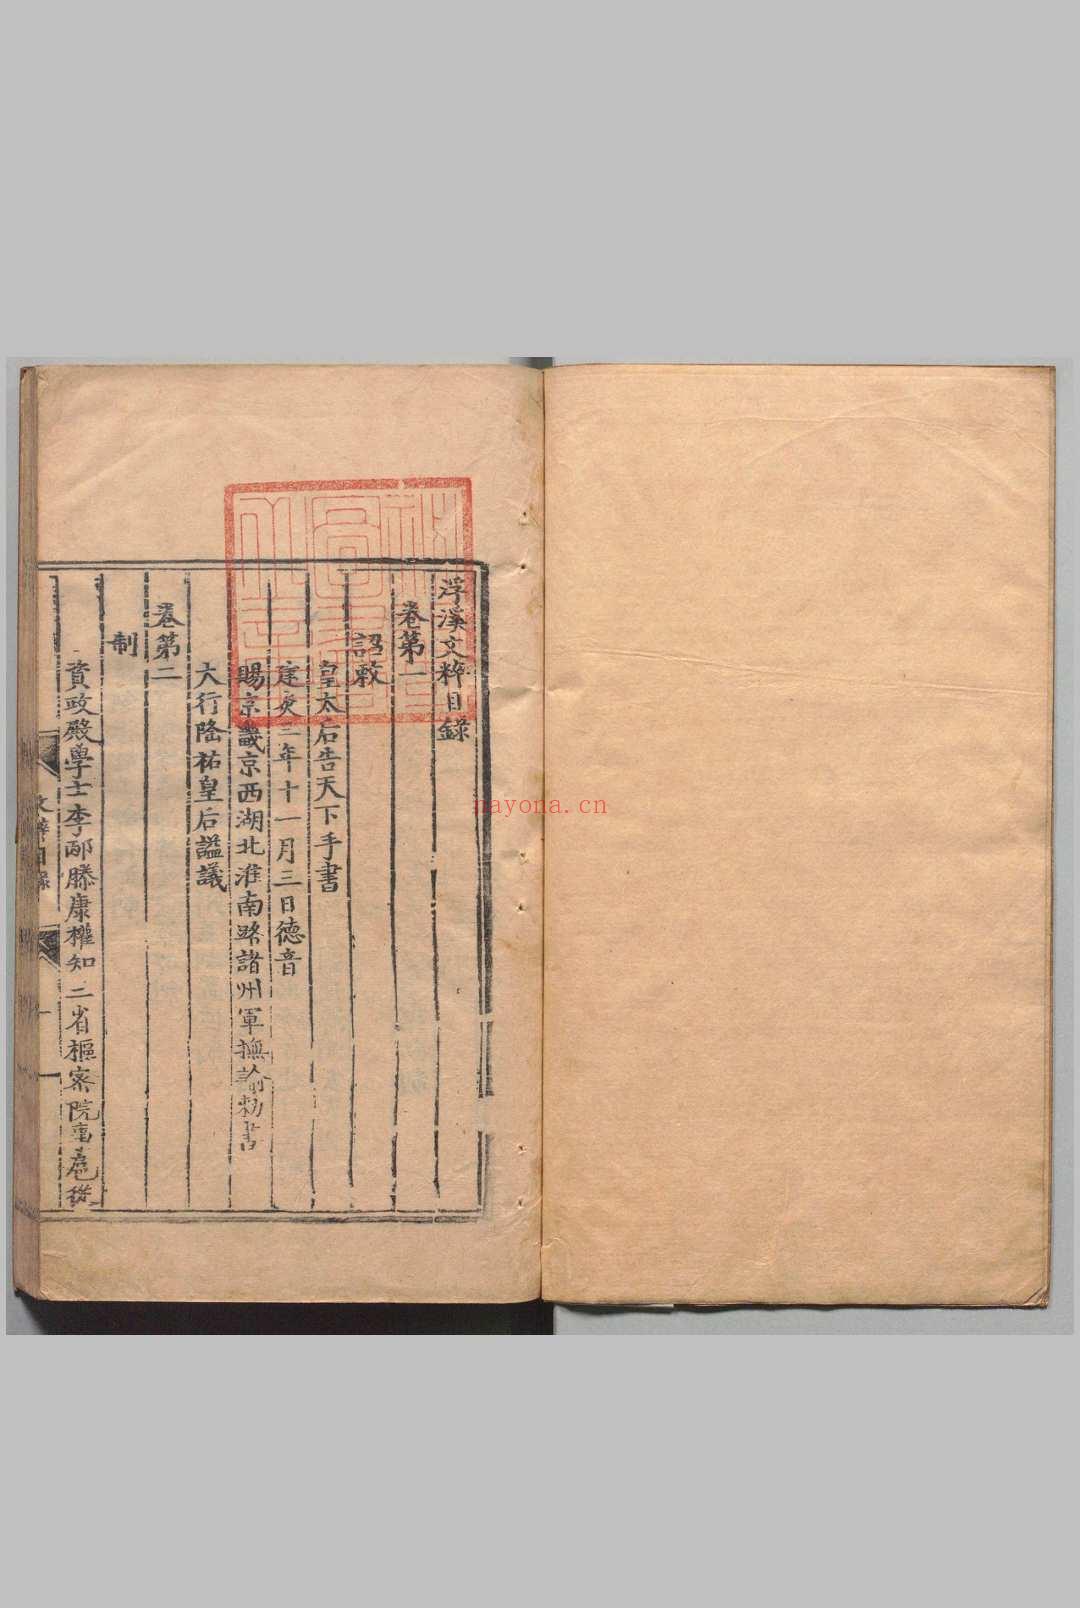 浮溪文粹目錄
卷第一
詔敕
皇太后告天下手書
建炎三年十一月三日德音
賜京畿京西湖北淮南路諸州軍撫諭勑書
大行隆祐皇后謚議
卷第二
制
資政殿學士李邴滕康權知三省樞密院事扈從
文粹目錄
一
nayona.cn